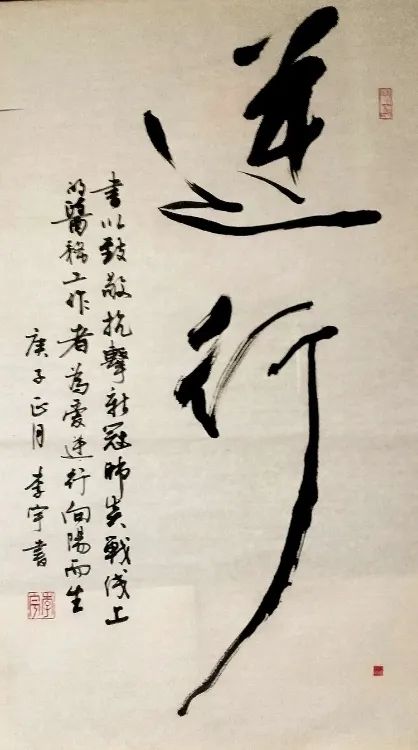 逆行
書以致敬抗擊新冠肺炎戰线上
的醫務工作者為爱逆行向陽而生
庚子正月 李宇書